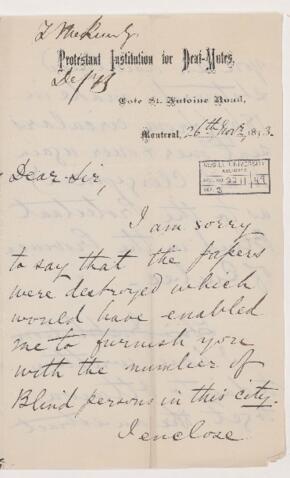 Protestant Institution for Deaf-Mutes,
Cote St. Antoine Road,
Montreal, 26th Nov. 1883.
McGILL UNIVERSITY
ARCHIVES
Dear Sir,
I am sorry
to say that the papers
were destroyed which
would have enabled
me to furnish you
with the number of
Blind persons in this city.
I enclose